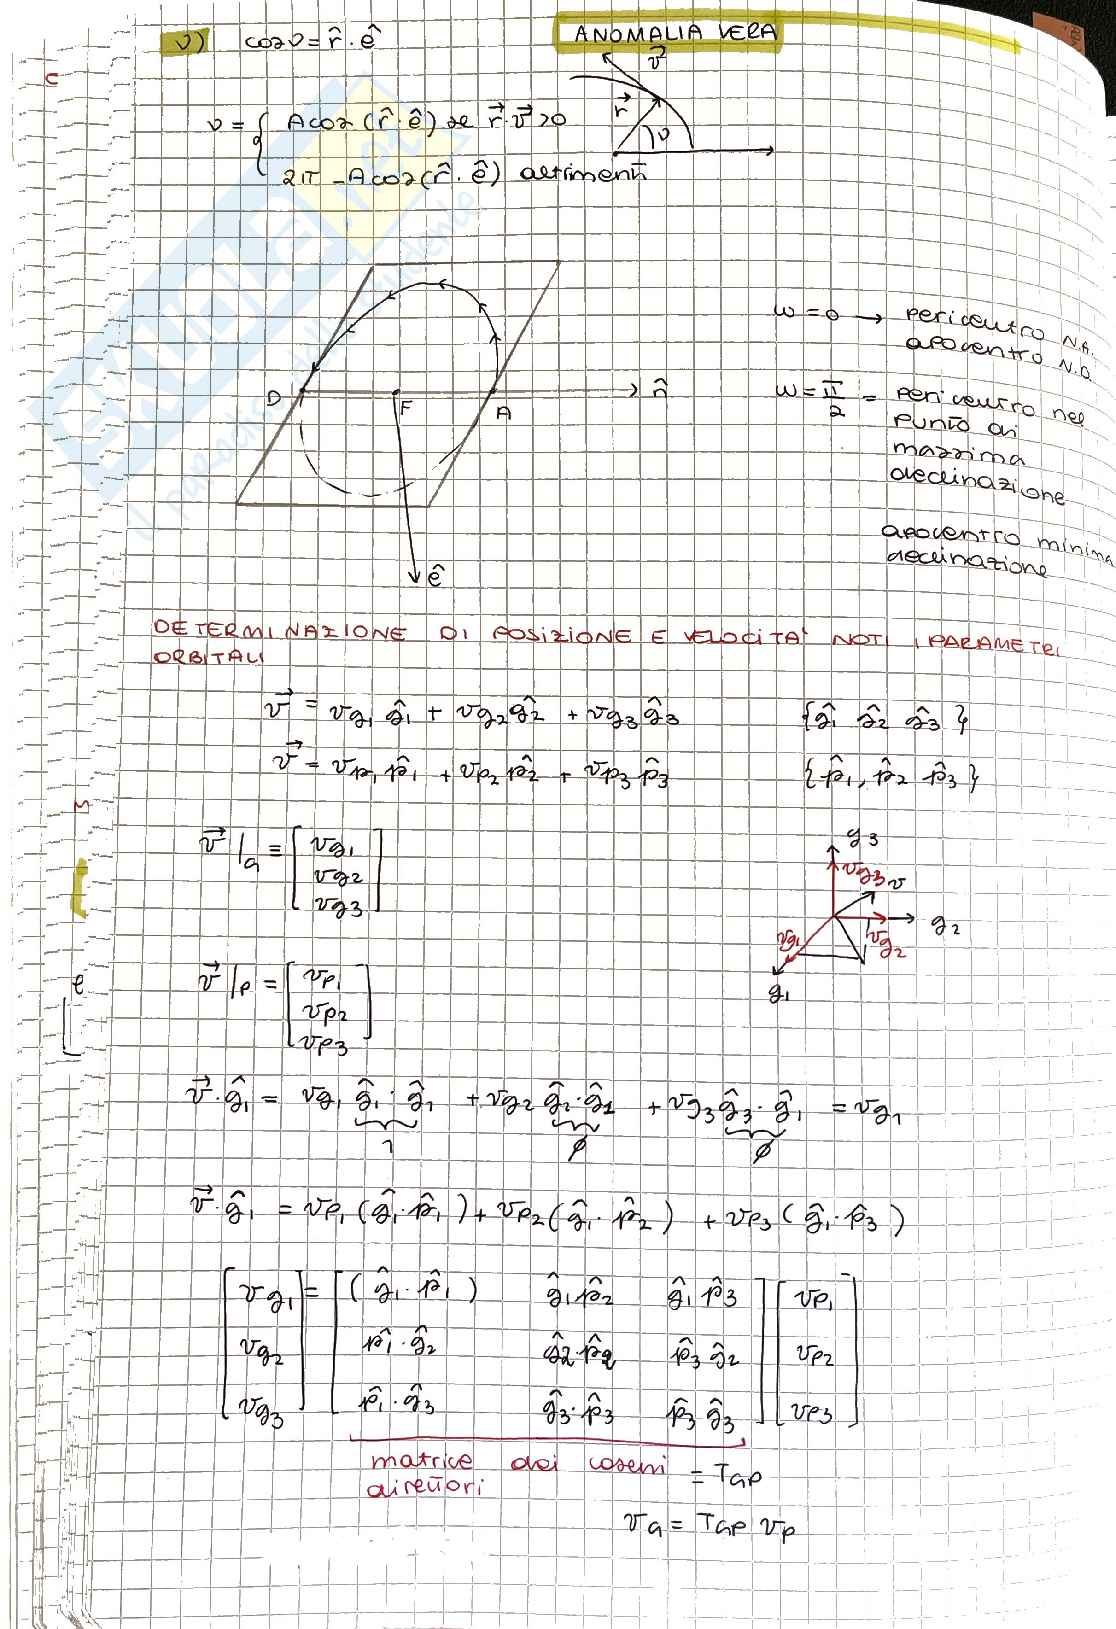 ν) cos ν = r̂ · ê
ANOMALIA VERA
ν = { Acos (r̂ · ê) se r⃗ · v⃗ > 0
2π - Acos (r̂ · ê) altrimenti
v⃗
r⃗
ν
D
F
A
n̂
ê
ω = 0 → pericentro N.A.
apocentro N.D.
ω = π/2 = pericentro nel
punto di
massima
declinazione
apocentro minima
declinazione
DETERMINAZIONE DI POSIZIONE E VELOCITA' NOTI I PARAMETRI
ORBITALI
v⃗ = vg1 ĝ1 + vg2 ĝ2 + vg3 ĝ3 {ĝ1 ĝ2 ĝ3}
v⃗ = vp1 p̂1 + vp2 p̂2 + vp3 p̂3 {p̂1, p̂2 p̂3}
v⃗ |G ≡ [ vg1
vg2
vg3 ]
g3
vg3
v
g2
vg2
vg1
g1
v⃗ |p = [ vp1
vp2
vp3 ]
v⃗ · ĝ1 = vg1 ĝ1 · ĝ1 + vg2 ĝ2 · ĝ1 + vg3 ĝ3 · ĝ1 = vg1
1 ∅ ∅
v⃗ · ĝ1 = vp1 (ĝ1 · p̂1) + vp2 (ĝ1 · p̂2) + vp3 (ĝ1 · p̂3)
[ vg1 ] = [ (ĝ1 · p̂1) ĝ1 p̂2 ĝ1 p̂3 ] [ vp1 ]
[ vg2 ] [ p̂1 · ĝ2 ĝ2 · p̂2 p̂3 ĝ2 ] [ vp2 ]
[ vg3 ] [ p̂1 · ĝ3 ĝ3 · p̂3 p̂3 ĝ3 ] [ vp3 ]
matrice dei coseni = TGP
direttori
vG = TGP vp